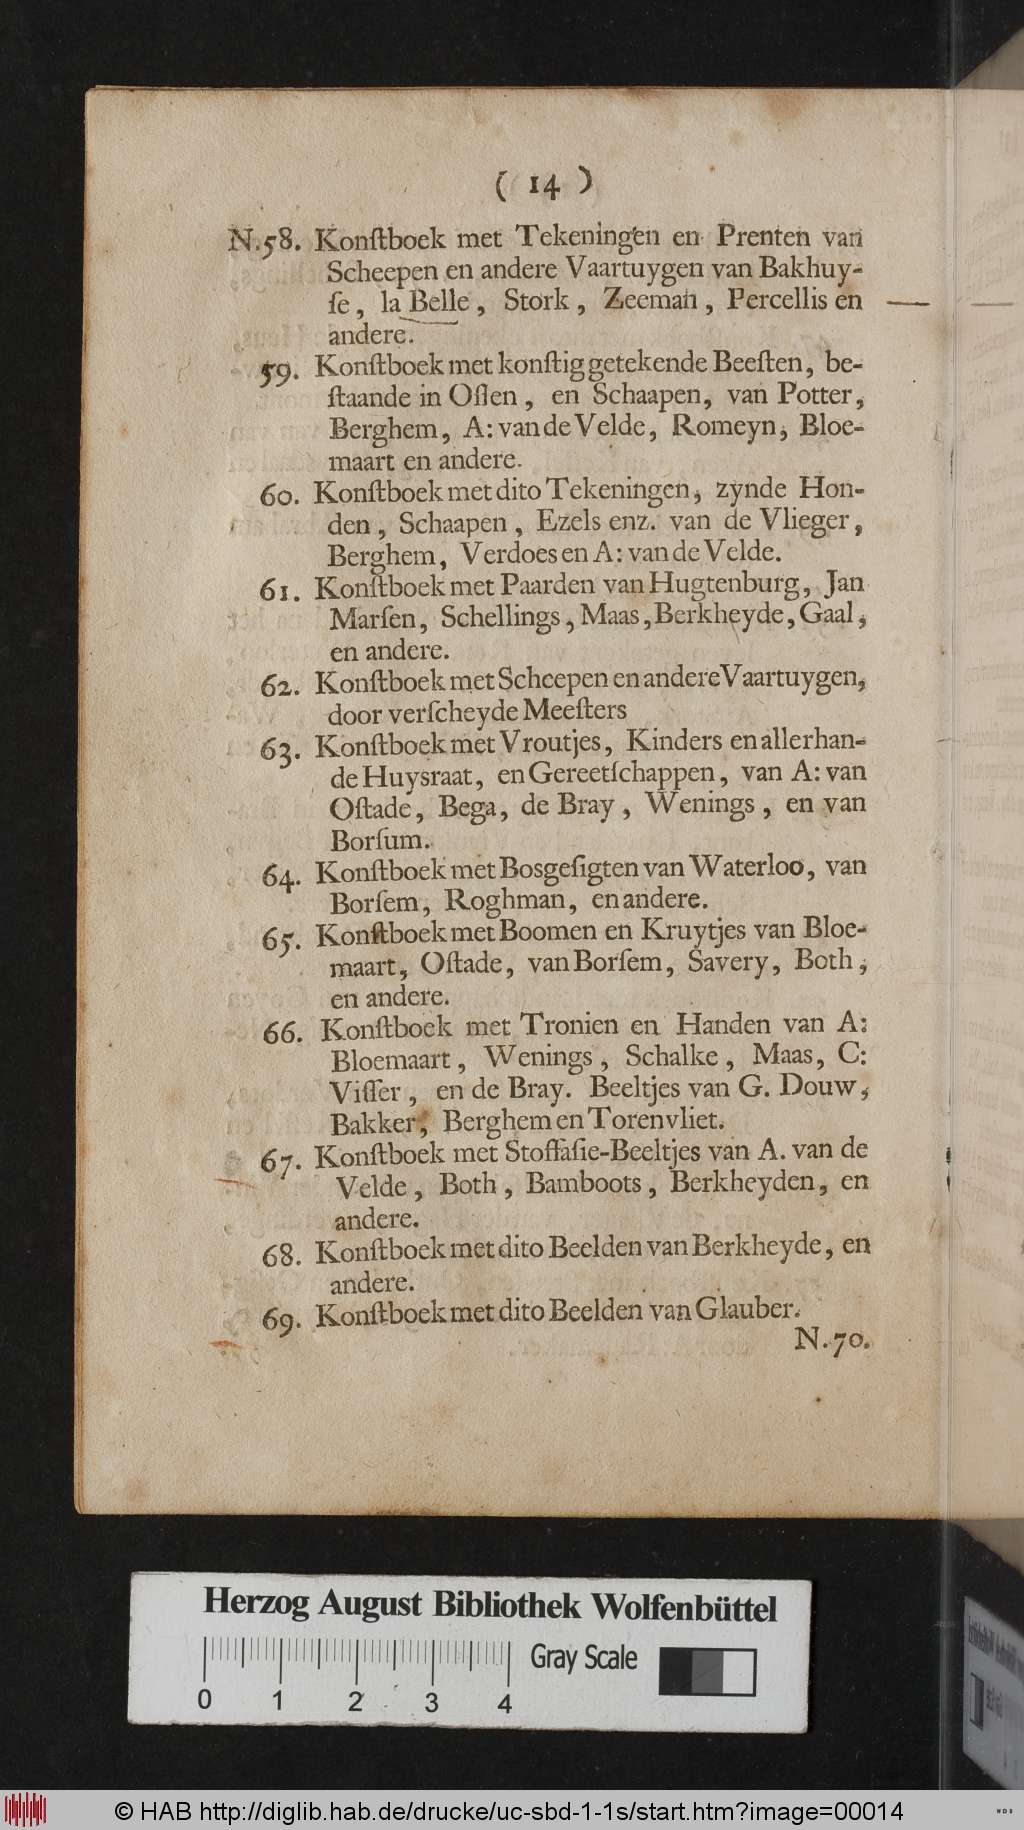 ( 14 )
N.58. Konſtboek met Tekeningen en Prenten van
Scheepen en andere Vaartuygen van Bakhuy-
ſe, la Belle, Stork, Zeeman, Percellis en
andere.
59. Konſtboek met konſtig getekende Beeſten, be-
ſtaande in Oſſen, en Schaapen, van Potter,
Berghem, A: van de Velde, Romeyn, Bloe-
maart en andere.
60. Konſtboek met dito Tekeningen, zynde Hon-
den, Schaapen, Ezels enz. van de Vlieger,
Berghem, Verdoes en A: van de Velde.
61. Konſtboek met Paarden van Hugtenburg, Jan
Marſen, Schellings, Maas, Berkheyde, Gaal,
en andere.
62. Konſtboek met Scheepen en andere Vaartuygen,
door verſcheyde Meeſters
63. Konſtboek met Vroutjes, Kinders en allerhan-
de Huysraat, en Gereetſchappen, van A: van
Oſtade, Bega, de Bray, Wenings, en van
Borſum.
64. Konſtboek met Bosgeſigten van Waterloo, van
Borſem, Roghman, en andere.
65. Konſtboek met Boomen en Kruytjes van Bloe-
maart, Oſtade, van Borſem, Savery, Both,
en andere.
66. Konſtboek met Tronien en Handen van A:
Bloemaart, Wenings, Schalke, Maas, C:
Viſſer, en de Bray. Beeltjes van G. Douw,
Bakker, Berghem en Torenvliet.
67. Konſtboek met Stoffaſie-Beeltjes van A. van de
Velde, Both, Bamboots, Berkheyden, en
andere.
68. Konſtboek met dito Beelden van Berkheyde, en
andere.
69. Konſtboek met dito Beelden van Glauber.
N.70.
Herzog August Bibliothek Wolfenbüttel
Gray Scale
0 1 2 3 4
© HAB http://diglib.hab.de/drucke/uc-sbd-1-1s/start.htm?image=00014